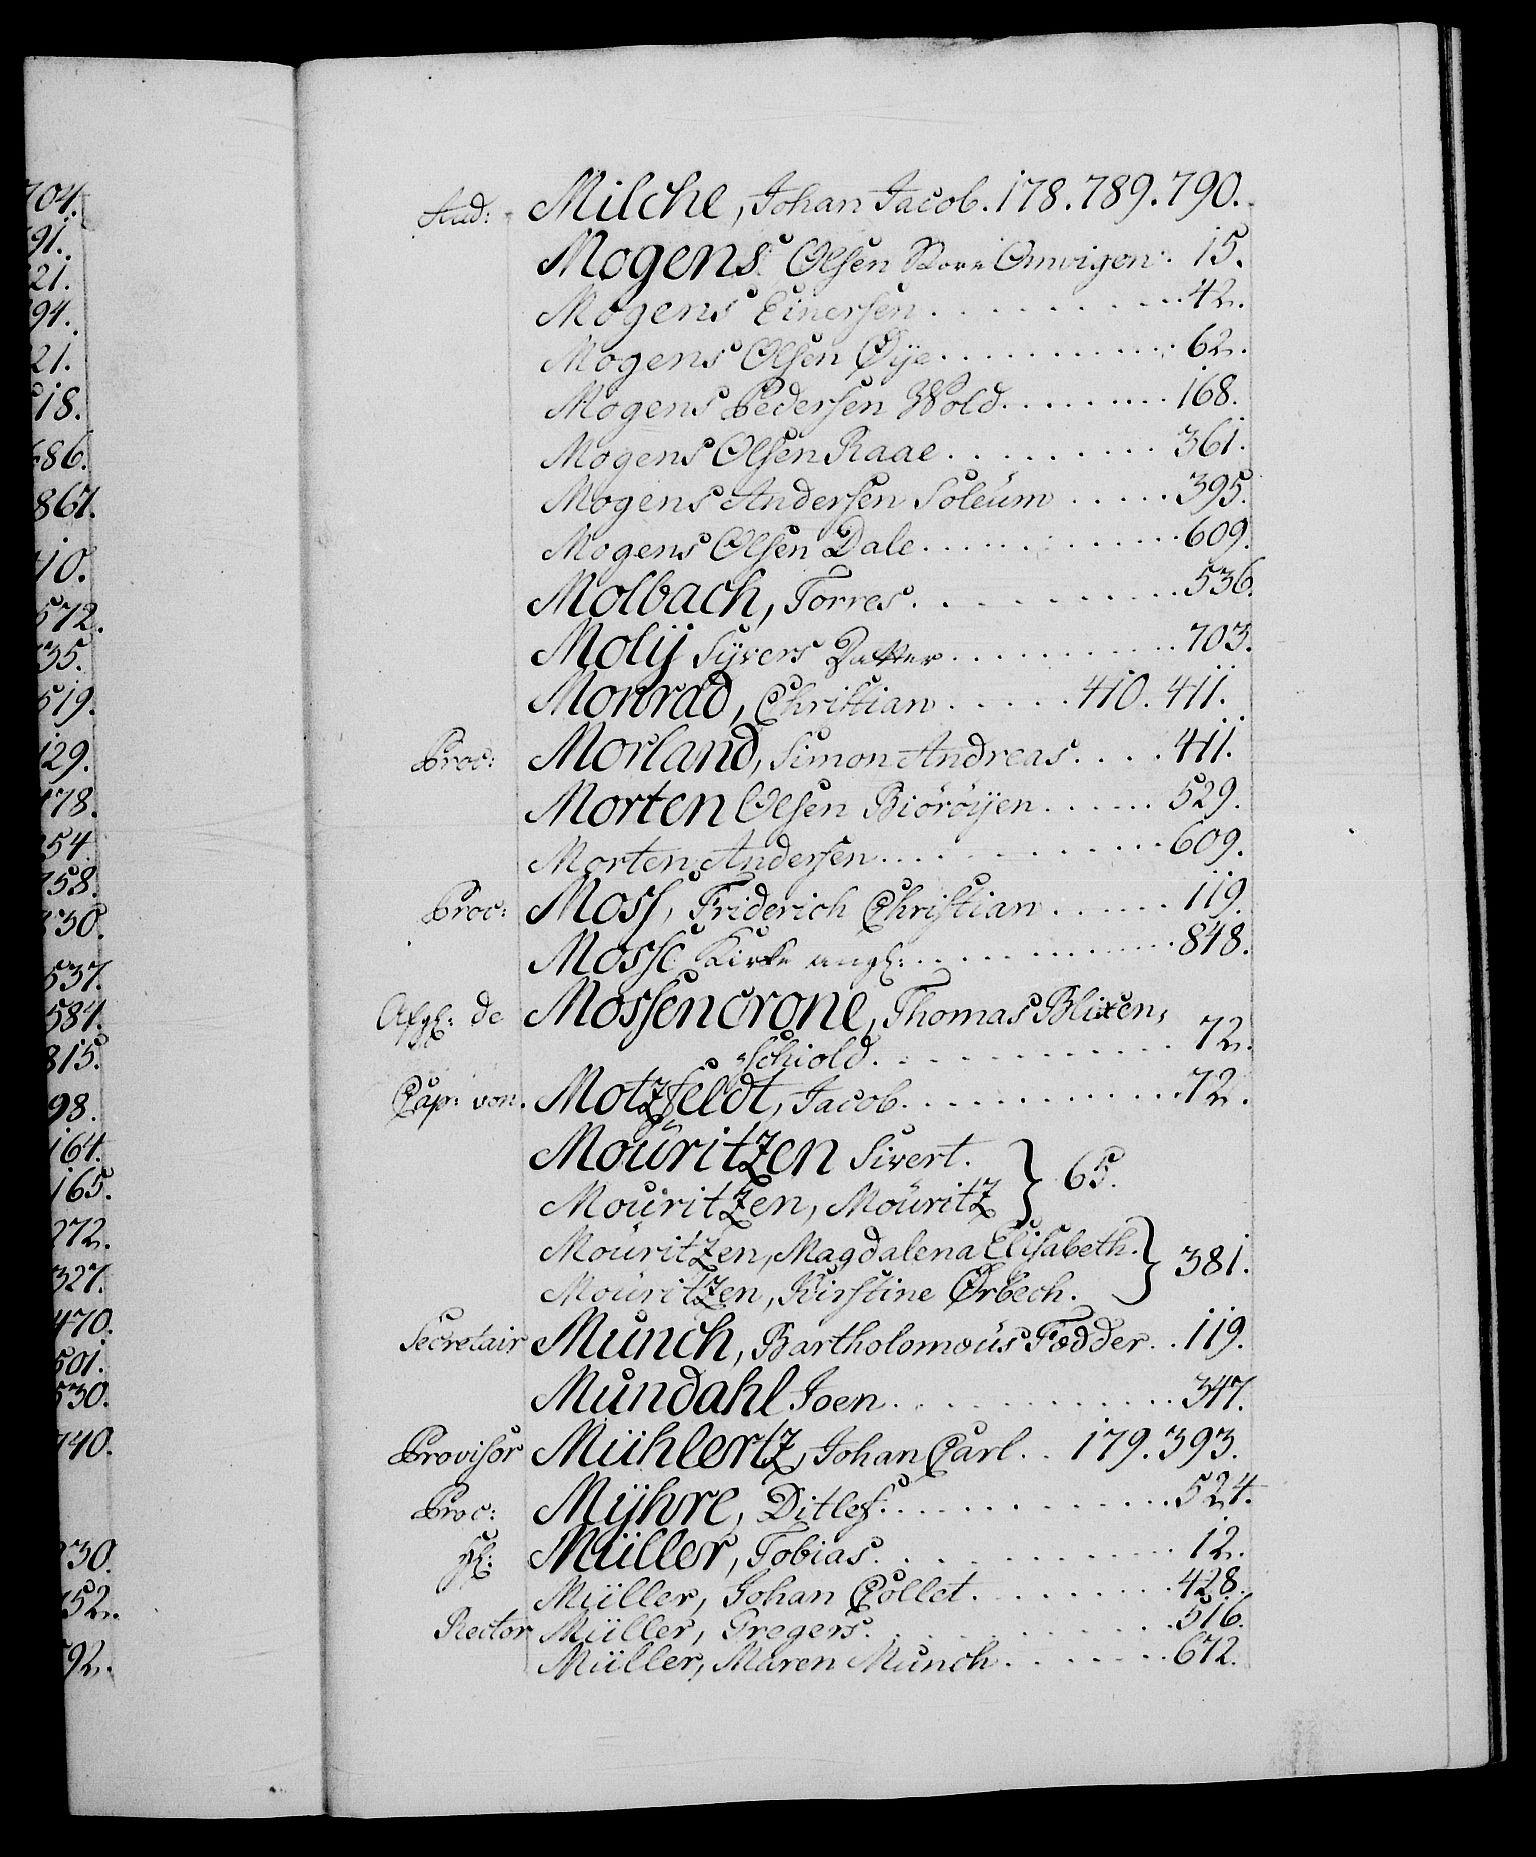 704.
91.
21.
94.
21.
18.
686.
867.
10.
572.
35.
519.
129.
178.
354.
758.
30.
537.
584.
815.
98.
164.
165.
272.
327.
470.
501.
530.
740.
30.
52.
92.
Aud: Milche, Johan Jacob. 178. 789. 790.
Mogens Olsen Store Omvigen. 15.
Mogens Einersen . . . . . . . 42.
Mogens Olsen Øÿe . . . . . . . 62.
Mogens Pedersen Wold . . . . . . . 168.
Mogens Olsen Raae . . . . . . . 361.
Mogens Andersen Soleüm . . . . . 395.
Mogens Olsen Dale . . . . . . . 609.
Molbach, Torres . . . . . . . 536.
Molÿ Sÿvers Datter . . . . . . . 703.
Monrad, Christian . . . . . 410. 411.
Proc: Morland, Simon Andreas . . . . 411.
Morten Olsen Biöröÿen . . . . . 529.
Morten Andersen . . . . . . . 609.
Proc: Moss, Friderich Christian . . . . . 119.
Mosse Kirke angl: . . . . . . . 848.
Afgl: de Mossencrone, Thomas Blixen,
Schiold . . . . . . . 72.
Cap: von. Motzfeldt, Jacob . . . . . . . 72.
Moüritzen Sivert. } 65.
Moüritzen, Moüritz
Moüritzen, Magdalena Elisabeth. } 381.
Moüritzen, Kirstine Ørbech.
Secretair Munch, Bartholomæüs Fædder . . 119.
Mundahl Joen . . . . . . . 347.
Provisor Mühlertz, Johan Carl . . 179. 393.
Proc: Mÿhre, Ditlef . . . . . . . 524.
Hl: Müller, Tobias . . . . . . . 12.
Müller, Johan Collet . . . . . . . 428.
Rector Müller, Gregers . . . . . . . 516.
Müller, Maren Munch . . . . . . . 672.